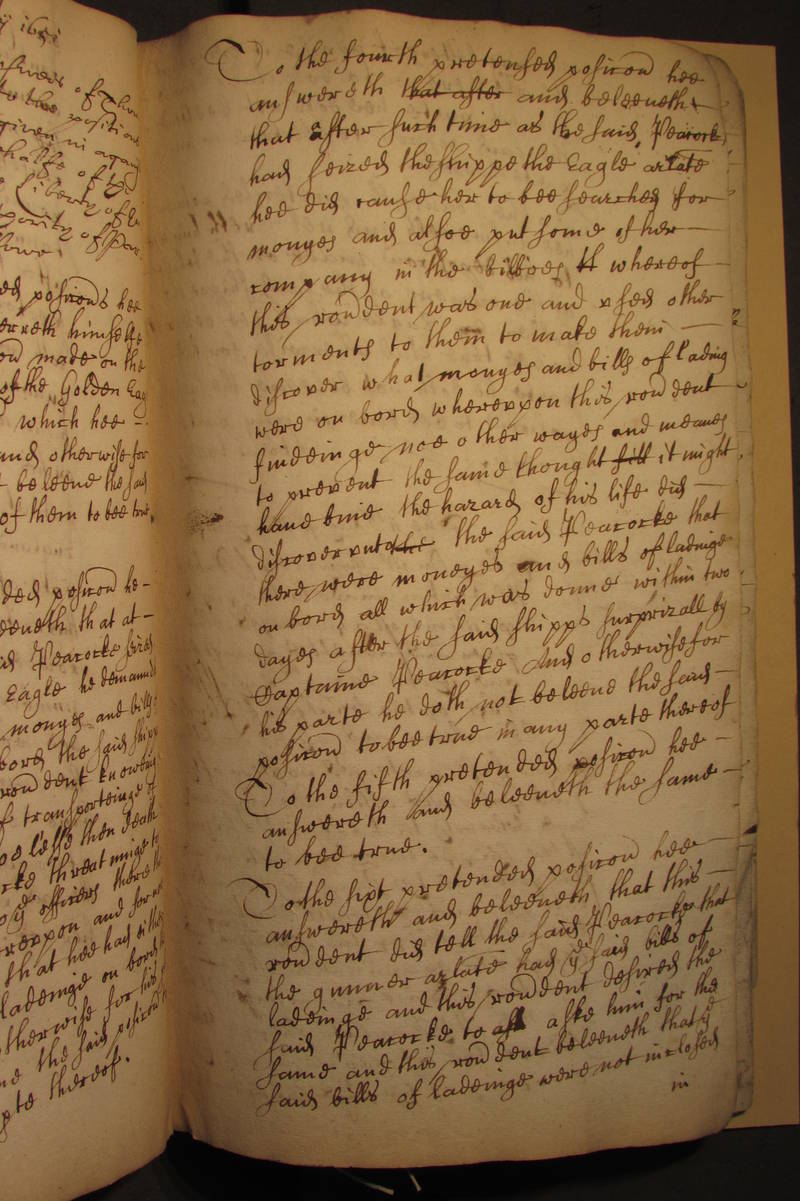 y 1651
answers of Tho
to the position
given in again
halfe of the
Liberty of E
thority of Par
lowe.
ed positions hee
erreth himselfe
on made on the
of the Golden Eag
which hee
and otherwise for
beleeve the said
of them to bee true.
ded posicon he
eeveth that at
id Peacocke seized
Eagle he demanded
moneyes and bills
bord the said shipp
rondent knowing
of transporteinge of
noe lesse then death
cke threatninge to
officers there
rexpon and for
that hee had
ladeinge on bord
therwise for his
the said posicon
pte thereof.
To the fourth pretensed posicon hee
answereth that after and beleeveth
that after such time as the said Peacock
had seized the shippe the Eagle arlate
hee did cause her to bee searched for
monyes and alsoe put some of her
company in the bilboes tt whereof
this rondent was one and used other
torments to them to make them
discover what monyes and bills of lading
were on bord wherevpon this rondent
findeinge noe other wayes and meanes
to prevent the same thought still it might
have bine the hazard of his life did
discover vnto the the said Peacocke that
there were moneyes and bills of ladeinge
on bord all which was donne within two
dayes after the said shipps surprizall by
Captaine Peacocke And otherwise for
his parte he doth not beleeve the said
posicon to bee true in any parte thereof
To the fifth pretended posicon hee
answereth and beleeveth the same
to bee true.
To the sixt pretended posicon hee
answereth and beleeveth that this
rondent did tell the said Peacocke that
the gunner arlate had ye said bills of
ladeinge and this rondent desired the
said Peacocke to ask aske him for the
same and this rondent beleeveth that ye
said bills of ladeinge were not inclosed
in